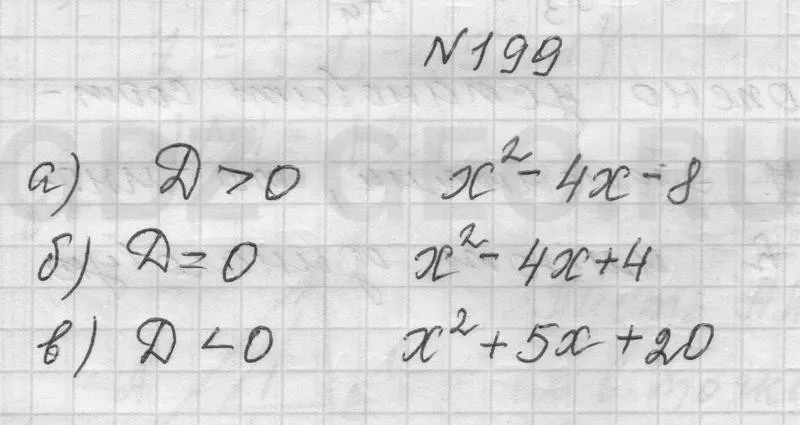 N199
а) D > 0 x² - 4x - 8
б) D = 0 x² - 4x + 4
в) D < 0 x² + 5x + 20